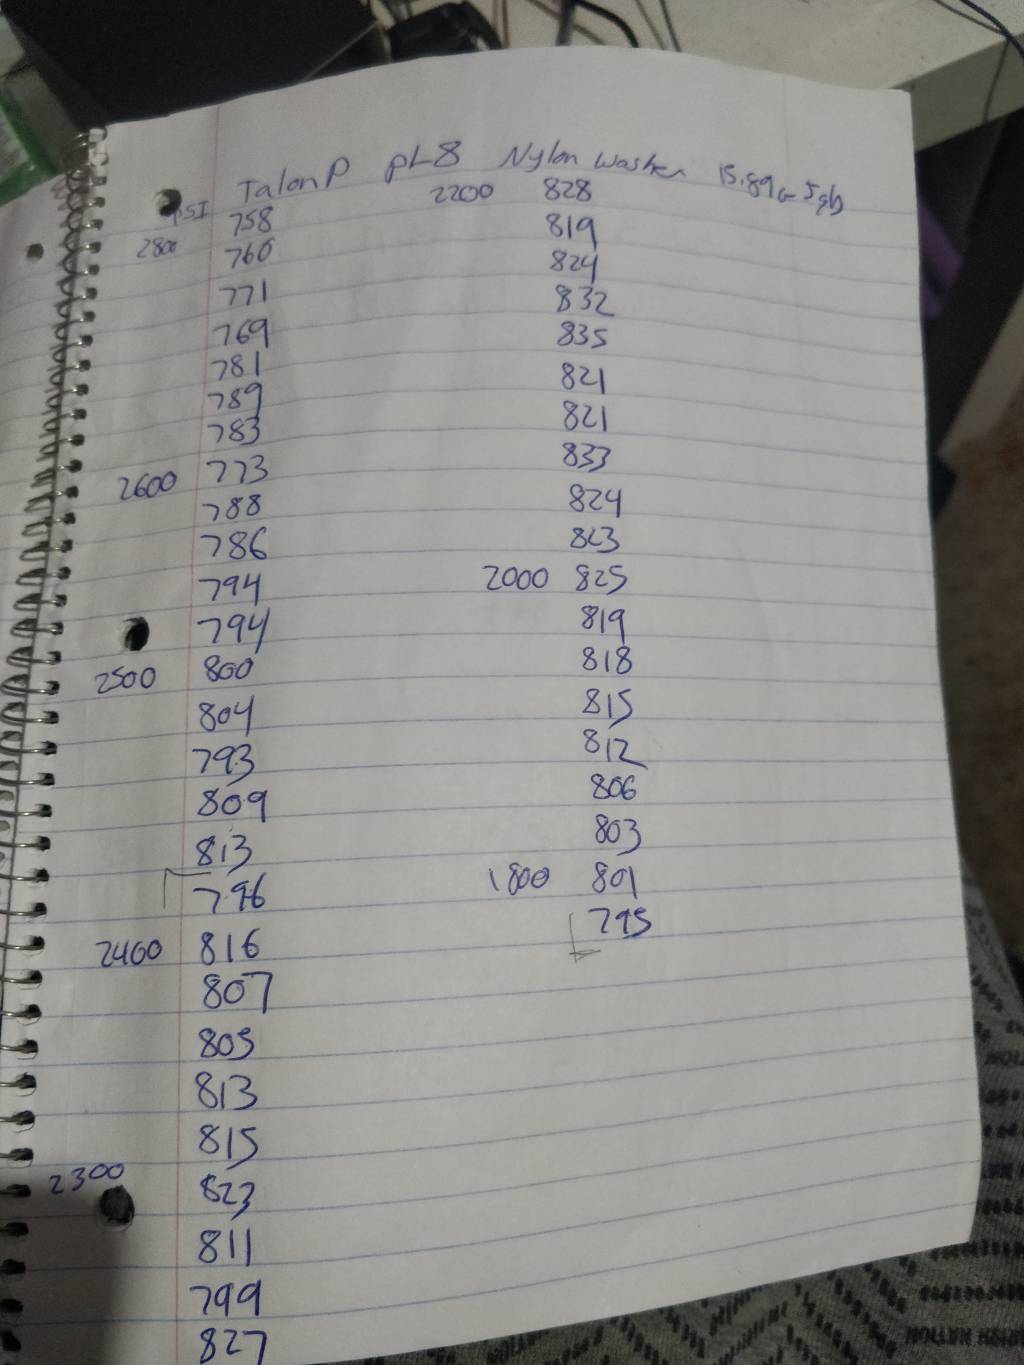 TalonP PL8 Nylon washer 15.89g JSB
PSI 758
2800 760
771
769
781
789
783
2600 773
788
786
794
794
2500 800
804
793
809
813
796
2400 816
807
805
813
815
2300 823
811
799
827
2200 828
819
824
832
835
821
821
833
824
823
2000 825
819
818
815
812
806
803
1800 801
795